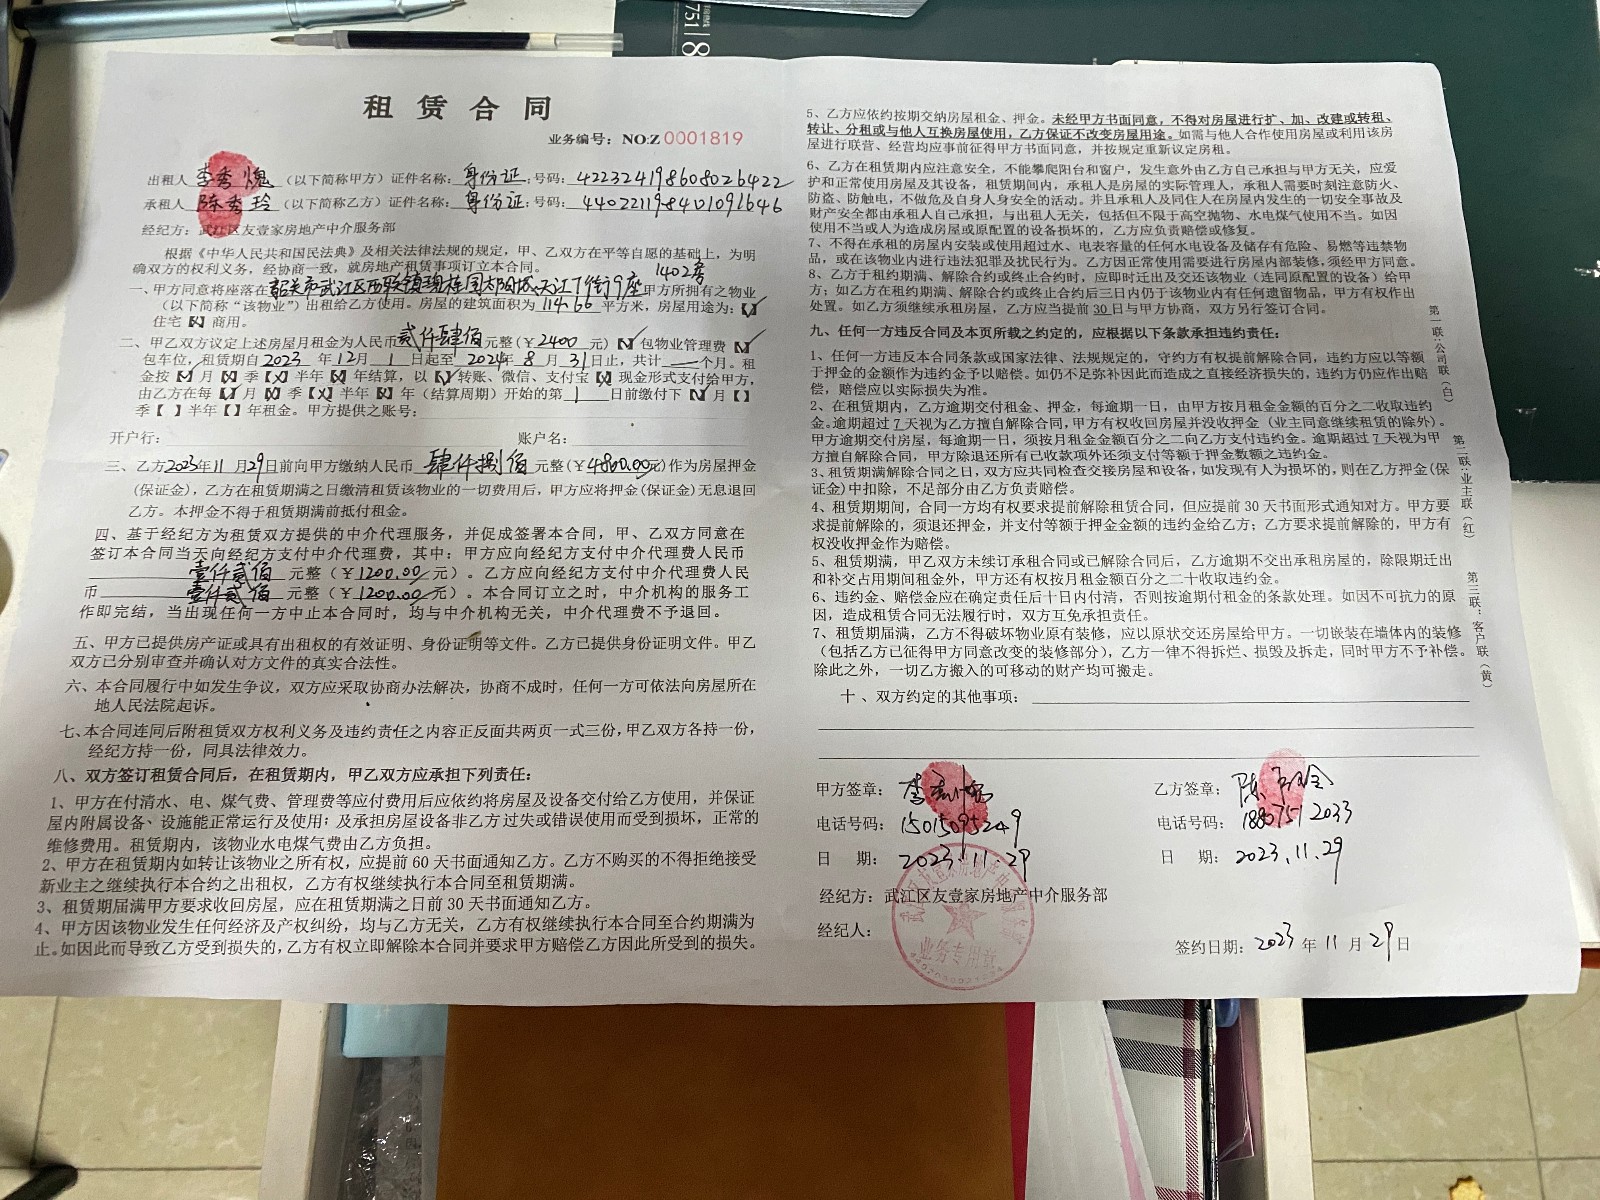 租 赁 合 同
业务编号：NO:Z 0001819
出租人 李秀 （以下简称甲方）证件名称：身份证；号码：422324198608026422
承租人 陈秀玲 （以下简称乙方）证件名称：身份证；号码：440221198401091646
经纪方：武江区友壹家房地产中介服务部
根据《中华人民共和国民法典》及相关法律法规的规定，甲、乙双方在平等自愿的基础上，为明
确双方的权利义务，经协商一致，就房地产租赁事项订立本合同。
1402房
一、甲方同意将座落在韶关市武江区西联镇碧桂园太阳城天江 街9座 甲方所拥有之物业
（以下简称“该物业”）出租给乙方使用。房屋的建筑面积为 114.66 平方米，房屋用途为：【✓】
住宅【×】商用。
二、甲乙双方议定上述房屋月租金为人民币 贰仟肆佰 元整（￥2400 元）【✓】包物业管理费【✓】
包车位，租赁期自 2023 年 12 月 1 日起至 2024 年 8 月 31 日止，共计 — 个月。租
金按【✓】月【×】季【×】半年【×】年结算，以【✓】转账、微信、支付宝【×】现金形式支付给甲方，
由乙方在每【✓】月【×】季【×】半年【×】年（结算周期）开始的第 1 日前缴付下【✓】月【 】
季【 】半年【 】年租金。甲方提供之账号：
开户行： 账户名：
三、乙方2023年11月29日前向甲方缴纳人民币 肆仟捌佰 元整（￥4800.00元）作为房屋押金
（保证金），乙方在租赁期满之日缴清租赁该物业的一切费用后，甲方应将押金（保证金）无息退回
乙方。本押金不得于租赁期满前抵付租金。
四、基于经纪方为租赁双方提供的中介代理服务，并促成签署本合同，甲、乙双方同意在
签订本合同当天向经纪方支付中介代理费，其中：甲方应向经纪方支付中介代理费人民币
壹仟贰佰 元整（￥1200.00元）。乙方应向经纪方支付中介代理费人民
币 壹仟贰佰 元整（￥1200.00元）。本合同订立之时，中介机构的服务工
作即完结，当出现任何一方中止本合同时，均与中介机构无关，中介代理费不予退回。
五、甲方已提供房产证或具有出租权的有效证明、身份证明等文件。乙方已提供身份证明文件。甲乙
双方已分别审查并确认对方文件的真实合法性。
六、本合同履行中如发生争议，双方应采取协商办法解决，协商不成时，任何一方可依法向房屋所在
地人民法院起诉。
七、本合同连同后附租赁双方权利义务及违约责任之内容正反面共两页一式三份，甲乙双方各持一份，
经纪方持一份，同具法律效力。
八、双方签订租赁合同后，在租赁期内，甲乙双方应承担下列责任：
1、甲方在付清水、电、煤气费、管理费等应付费用后应依约将房屋及设备交付给乙方使用，并保证
屋内附属设备、设施能正常运行及使用；及承担房屋设备非乙方过失或错误使用而受到损坏，正常的
维修费用。租赁期内，该物业水电煤气费由乙方负担。
2、甲方在租赁期内如转让该物业之所有权，应提前 60 天书面通知乙方。乙方不购买的不得拒绝接受
新业主之继续执行本合约之出租权，乙方有权继续执行本合同至租赁期满。
3、租赁期届满甲方要求收回房屋，应在租赁期满之日前 30 天书面通知乙方。
4、甲方因该物业发生任何经济及产权纠纷，均与乙方无关，乙方有权继续执行本合同至合约期满为
止。如因此而导致乙方受到损失的，乙方有权立即解除本合同并要求甲方赔偿乙方因此所受到的损失。
5、乙方应依约按期交纳房屋租金、押金。未经甲方书面同意，不得对房屋进行扩、加、改建或转租、
转让、分租或与他人互换房屋使用，乙方保证不改变房屋用途。如需与他人合作使用房屋或利用该房
屋进行联营、经营均应事前征得甲方书面同意，并按规定重新议定房租。
6、乙方在租赁期内应注意安全，不能攀爬阳台和窗户，发生意外由乙方自己承担与甲方无关，应爱
护和正常使用房屋及其设备，租赁期间内，承租人是房屋的实际管理人，承租人需要时刻注意防火、
防盗、防触电，不做危及自身人身安全的活动。并且承租人及同住人在房屋内发生的一切安全事故及
财产安全都由承租人自己承担，与出租人无关，包括但不限于高空抛物、水电煤气使用不当。如因
使用不当或人为造成房屋或原配置的设备损坏的，乙方应负责赔偿或修复。
7、不得在承租的房屋内安装或使用超过水、电表容量的任何水电设备及储存有危险、易燃等违禁物
品，或在该物业内进行违法犯罪及扰民行为。乙方因正常使用需要进行房屋内部装修，须经甲方同意。
8、乙方于租赁期满、解除合约或终止合约时，应即时迁出及交还该物业（连同原配置的设备）给甲
方；如乙方在租赁期满、解除合约或终止合约后三日内仍于该物业内有任何遗留物品，甲方有权作出
处置。如乙方须继续承租房屋，乙方应当提前 30 日与甲方协商，双方另行签订合同。
九、任何一方违反合同及本页所载之约定的，应根据以下条款承担违约责任：
1、任何一方违反本合同条款或国家法律、法规规定的，守约方有权提前解除合同，违约方应以等额
于押金的金额作为违约金予以赔偿。如仍不足弥补因此而造成之直接经济损失的，违约方仍应作出赔
偿，赔偿应以实际损失为准。
2、在租赁期内，乙方逾期交付租金、押金，每逾期一日，由甲方按月租金金额的百分之二收取违约
金。逾期超过 7 天视为乙方擅自解除合同，甲方有权收回房屋并没收押金（业主同意继续租赁的除外）。
甲方逾期交付房屋，每逾期一日，须按月租金金额百分之二向乙方支付违约金。逾期超过 7 天视为甲
方擅自解除合同，甲方除退还所有已收款项外还须支付等额于押金数额之违约金。
3、租赁期满解除合同之日，双方应共同检查交接房屋和设备，如发现有人为损坏的，则在乙方押金（保
证金）中扣除，不足部分由乙方负责赔偿。
4、租赁期期间，合同一方均有权要求提前解除租赁合同，但应提前 30 天书面形式通知对方。甲方要
求提前解除的，须退还押金，并支付等额于押金金额的违约金给乙方；乙方要求提前解除的，甲方有
权没收押金作为赔偿。
5、租赁期满，甲乙双方未续订承租合同或已解除合同后，乙方逾期不交出承租房屋的，除限期迁出
和补交占用期间租金外，甲方还有权按月租金额百分之二十收取违约金。
6、违约金、赔偿金应在确定责任后十日内付清，否则按逾期付租金的条款处理。如因不可抗力的原
因，造成租赁合同无法履行时，双方互免承担责任。
7、租赁期届满，乙方不得破坏物业原有装修，应以原状交还房屋给甲方。一切嵌装在墙体内的装修
（包括乙方已征得甲方同意改变的装修部分），乙方一律不得拆烂、损毁及拆走，同时甲方不予补偿。
除此之外，一切乙方搬入的可移动的财产均可搬走。
十、双方约定的其他事项：
甲方签章： 乙方签章：
电话号码：15015095249 电话号码：18807512033
日 期：2023.11.29 日 期：2023.11.29
经纪方：武江区友壹家房地产中介服务部
经纪人：
业务专用章
签约日期：2023 年 11 月 29 日
第一联：公司联（白）
第二联：业主联（红）
第三联：客户联（黄）